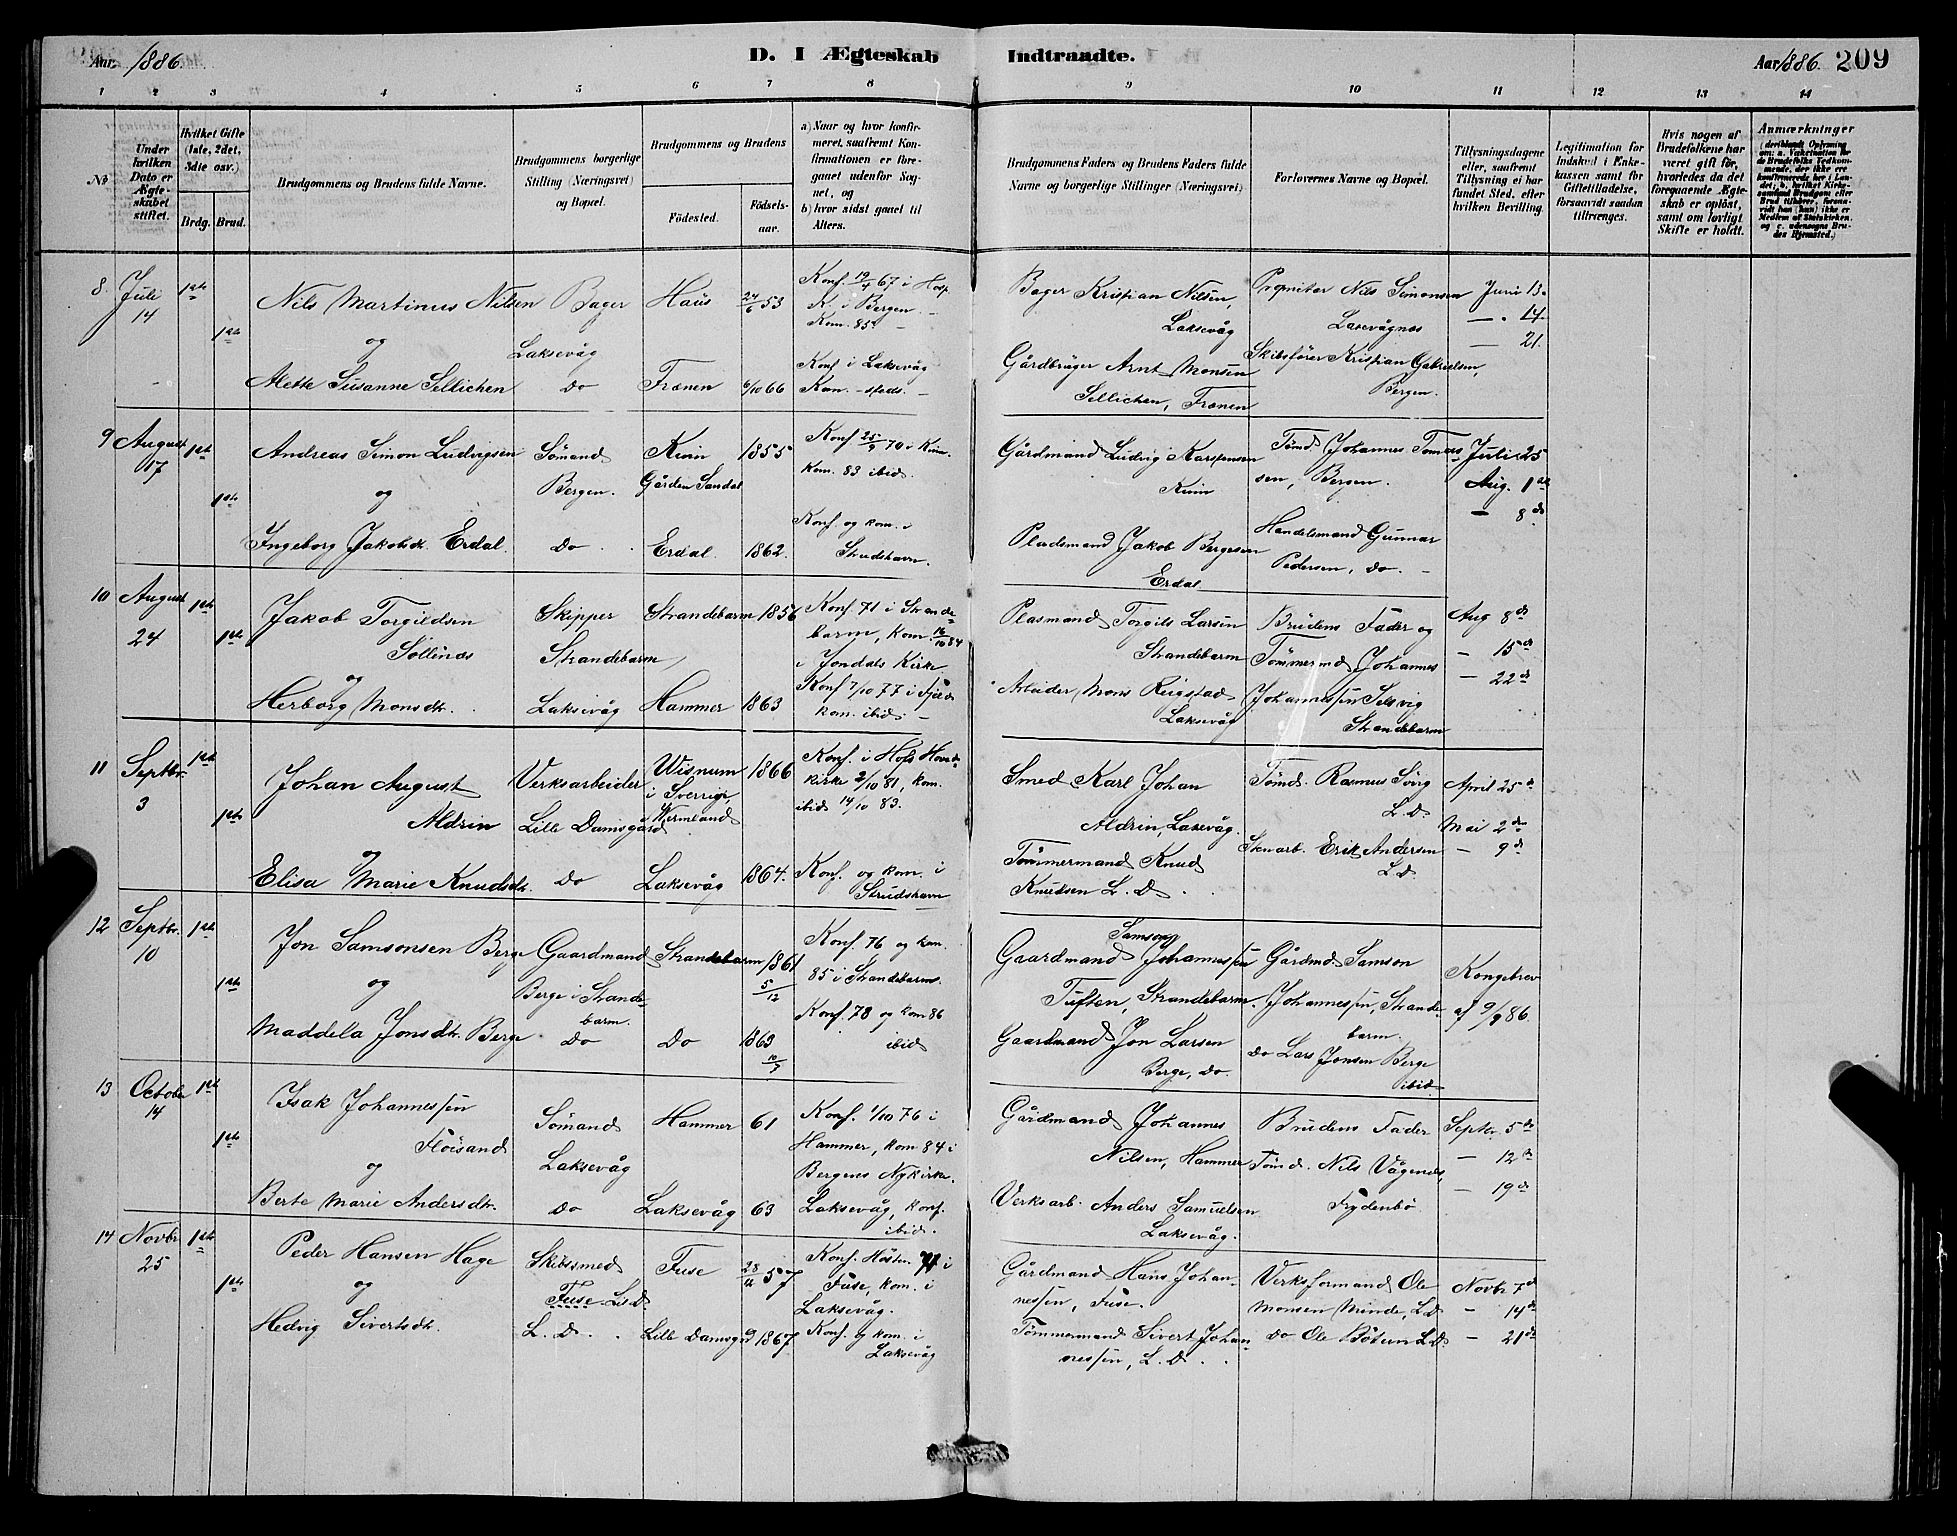 Aar 1886.
D. I Ægteskab Indtraadte.
Aar 1886. 209
1 2 3 4 5 6 7 8 9 10 11 12 13 14
No
Under hvilken Dato er Ægteskabet stiftet.
Hvilket Gifte (1ste, 2det, 3die osv.)
Brdg. Brud.
Brudgommens og Brudens fulde Navne.
Brudgommens borgerlige Stilling (Næringsvei) og Bopæl.
Brudgommens og Brudens
Födested.
Födselsaar.
a) Naar og hvor konfirmeret, saafremt Konfirmationen er foregaaet udenfor Sognet, og
b) hvor sidst gaaet til Alters.
Brudgommens Faders og Brudens Faders fulde Navne og borgerlige Stillinger (Næringsvei)
Forlovernes Navne og Bopæl.
Tillysningsdagene eller, saafremt Tillysning ei har fundet Sted, efter hvilken Bevilling.
Legitimation for Indskud i Enkekassen samt for Giftetilladelse, forsaavidt saadan tiltrænges.
Hvis nogen af Brudefolkene har været gift för, hvorledes da det foregaaende Ægteskab er oplöst, samt om lovligt Skifte er holdt.
Anmærkninger
8. Juli 14 1ste 1ste
Nils Martinus Nilsen
og
Alette Susanne Sellichen
Bager
Laksevåg
do
Haus
Frænen
24/6 53
6/10 66
Konf. 19/4 67 i Hosp.
K. i Bergen.
Kom. 85
Konf i Laksevåg
Kom. - steds.
Bager Kristian Nilsen,
Laksevåg
Gårdbruger Arnt Monsen
Sellichen, Frænen
Nils Simonsen
Laxevågnes
Skibsfører Kristian Gabrielsen,
Bergen.
Juni 13.
— 14.
— 21.
9 August 17 1ste 1ste
Andreas Simon Ludvigsen
og
Ingeborg Jakobsdtr. Erdal.
Sömand
Bergen.
do
Kinn
Gården Sandal
Erdal.
1855
1862.
Konf 25/9 70 i Kinn.
kom. 83 ibid.
Konf. og kom. i
Strudshavn.
Gårdmand Ludvig Karstensen
Kinn
Pladsmand Jakob Bergesen
Erdal
Tømd. Johannes Tomassen, Bergen.
Handelsmand Gunnar
Pedersen, do.
Juli 25
Aug. 1ste
— 8de
10 August 24 1ste 1ste
Jakob Torgildsen
Sollinæs
og
Herborg Monsdtr.
Skipper
Strandebarm
Laksevåg
Strandebarm
Hammer
1856
1863
Konf. 71 i Strandebarm, kom. 84
i Jondals Kirke
Konf 7/10 77 i Fjeld
kom. ibid.
Plasmand Torgils Larsen
Strandebarm
Arbeider Mons Reigstad
Laksevåg
Brudens Fader og
Tömmermd Johannes
Johannessen Selsvig
Strandebarm
Aug 8de
— 15de
— 22de
11 Septbr. 3 1ste 1ste
Johan August
Aldrin
og
Elisa Marie Knudsdtr.
Verksarbeider
Lille Damsgård
do
Wisnum
i Sverrige,
Wermland
Laksevåg
1866
1864.
Konf. i
kirke 2/10 81, kom.
ibid 14/10 83.
Konf. og kom. i
Strudshavn
Smed Karl Johan
Aldrin, Laxevåg.
Tömmermand Knud
Knudsen L. D.
Tömd. Rasmus
L. D.
Erik Andersen
L. D.
April 25de
Mai 2den
— 9de
12 Septbr. 10 1ste 1ste
Jon Samsonsen Berge
og
Maddela Jonsdtr. Berge
Gaardmand
Berge i Strandebarm.
do
Strandebarm
do
1861
5/12
1863
10/7
Konf. 76 og kom.
85 i Strandebarm.
Konf. 78 og kom 86
ibid
Samson
Gaardmand Johannessen
Tuften, Strandebarm.
Gaardmand Jon Larsen
Berge, do.
Gårdmd. Samson
Johannessen, Strandebarm.
do Lars Jonsen Berge
ibid.
Kongebrev
af 9/9 86.
13 October 14 1ste 1ste
Isak Johannessen
Floisand
og
Berte Marie Andersdtr.
Sömand
Laksevåg
do
Hammer
Laksevåg
61
63
Konf. 1/10 76 i
Hammer, kom 84 i
Bergens Nykirke.
Laksevåg, konf.
ibid.
Gårdmand Johannes
Nilsen, Hammer
Verksarb. Anders Samuelsen
Laksevåg.
Brudens Fader
Tömd. Nils Vågenes,
Frydenbö
Septbr. 5te
— 12te
— 19de
14 Novbr 25 1ste 1ste
Peder Hansen Hage
og
Hedvig Sivertsdtr.
Skibssmed
Fuse L. D.
L. D.
Fuse
Lille Damsgrd
28/11 57
1867
Konf. Hösten 71 i
Fuse, kom. i
Laksevåg.
Konf. og kom. i
Laksevåg
Gårdmand Hans Johannessen, Fuse.
Tömmermand Sivert Johannessen, L. D.
Verksformand Ole
Monsen Minde, L. D.
do Ole Bötun L. D.
Novbr 7de
— 14de
— 21de